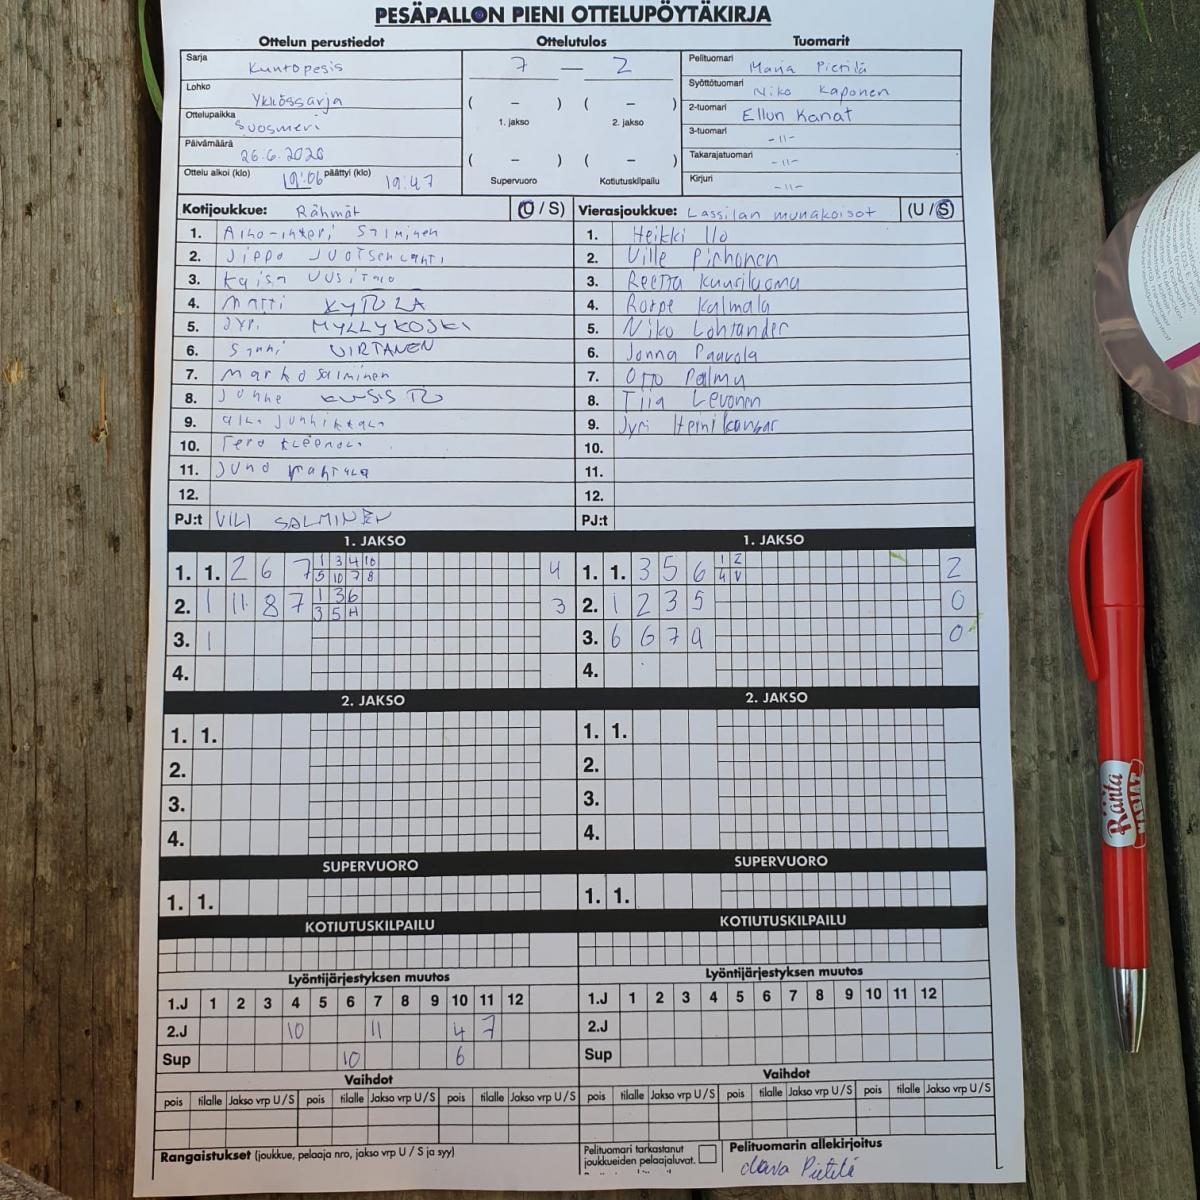 PESÄPALLON PIENI OTTELUPÖYTÄKIRJA
Ottelun perustiedot Ottelutulos Tuomarit
Sarja Kuntopesis 7 — 2 Pelituomari Pietilä
Lohko Ykkössarja Syöttötuomari Niko Kaponen
Ottelupaikka Suosmeri ( – ) ( – ) 2-tuomari Ellun Kanat
1. jakso 2. jakso 3-tuomari -11-
Päivämäärä 26.6.2020 ( – ) ( – ) Takarajatuomari -11-
Ottelu alkoi (klo) 19:06 päättyi (klo) 19:47 Supervuoro Kotiutuskilpailu Kirjuri -11-
Kotijoukkue: Rähmät (U / S) Vierasjoukkue: Lassilan munakoisot (U / S)
1. Salminen 1. Heikki Ilo
2. 2. Ville Pirhonen
3. Kaisa Uusitalo 3. Reetta Kuuriluoma
4. Matti KYTÖLÄ 4. Kalmala
5. MYLLYKOSKI 5. Niko Lohtander
6. VIRTANEN 6. Jonna Paavola
7. Marko Salminen 7. Otto Palmu
8. 8. Tiia Levonen
9. 9. Jyri
10. Tero 10.
11. 11.
12. 12.
PJ:t VILI SALMINEN PJ:t
1. JAKSO 1. JAKSO
1. 1. 2 6 7 1 3 4 10 4 1. 1. 3 5 6 1 2 2
5 10 7 8 4 V
2. 1 11 8 7 1 3 6 3 2. 1 2 3 5 0
3 5 H
3. 1 3. 6 6 7 9 0
4. 4.
2. JAKSO 2. JAKSO
1. 1. 1. 1.
2. 2.
3. 3.
4. 4.
SUPERVUORO SUPERVUORO
1. 1. 1. 1.
KOTIUTUSKILPAILU KOTIUTUSKILPAILU
Lyöntijärjestyksen muutos Lyöntijärjestyksen muutos
1.J 1 2 3 4 5 6 7 8 9 10 11 12 1.J 1 2 3 4 5 6 7 8 9 10 11 12
2.J 10 11 4 7 2.J
Sup 10 6 Sup
Vaihdot Vaihdot
pois tilalle Jakso vrp U / S pois tilalle Jakso vrp U / S pois tilalle Jakso vrp U / S pois tilalle Jakso vrp U / S pois tilalle Jakso vrp U / S pois tilalle Jakso vrp U / S
Rangaistukset (joukkue, pelaaja nro, jakso vrp U / S ja syy) Pelituomari tarkastanut Pelituomarin allekirjoitus
joukkueiden pelaajaluvat. Pietilä
Ranta
MARJAT